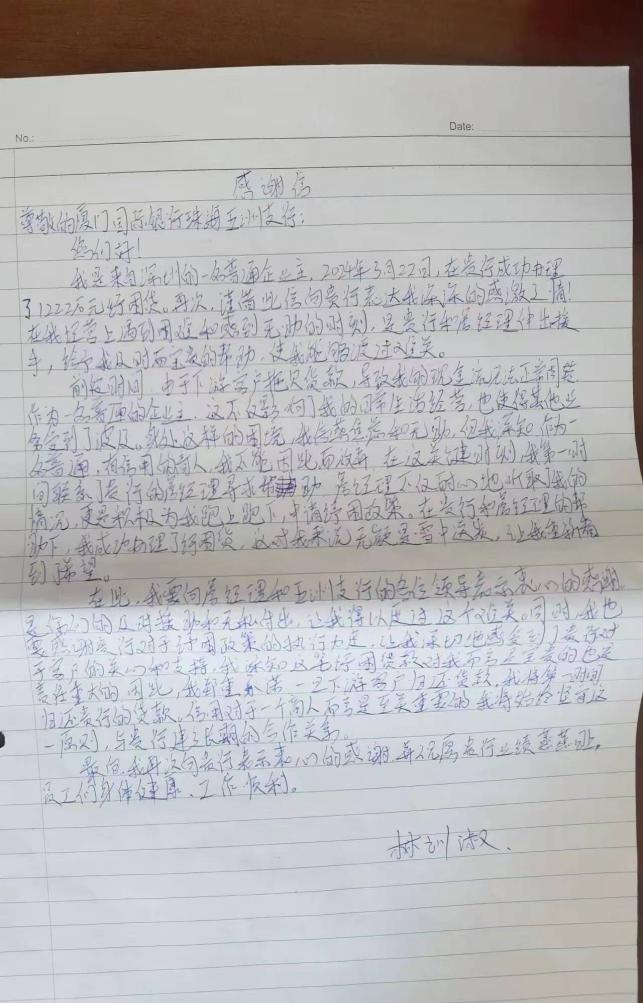 No.:
Date:
感谢信
尊敬的厦门国际银行珠海五洲支行：
您们好！
我是来自深圳的一名普通企业主，2024年3月22日，在贵行成功办理
了1222万元纾困贷。再次，谨借此信向贵行表达我深深的感激之情！
在我经营上遇到困难和感到无助的时刻，是贵行和居经理伸出援
手，给予我及时而宝贵的帮助，使我能够渡过难关。
前段时间，由于下游客户拖欠货款，导致我的现金流无法正常周转
作为一名普通的企业主，这不仅影响了我的正常生活经营，也使得其他业
务受到了波及。身处这样的困境，我倍感焦急和无助，但我深知，作为一
名普通、有信用的商人，我不能因此而放弃。在这关键时刻，我第一时
间联系了贵行的居经理寻求帮助，居经理不仅耐心地听取了我的
情况，更是积极为我跑上跑下，申请纾困政策。在贵行和居经理的帮
助下，我成功办理了纾困贷，这对我来说无疑是雪中送炭，让我重新看
到了希望。
在此，我要向居经理和五洲支行的各位领导表示衷心的感谢
是你们的及时援助和无私付出，让我得以度过这个难关。同时，我也
要感谢贵行对于纾困政策的执行力度，让我深切地感受到了贵行对
于客户的关心和支持。我深知这笔纾困贷款对我而言是宝贵的也是
责任重大的，因此，我郑重承诺，一旦下游客户归还货款，我将第一时间
归还贵行的贷款。信用对于一个商人而言是至关重要的，我将始终坚守这
一原则，与贵行建立长期的合作关系。
最后，我再次向贵行表示衷心的感谢，并祝愿贵行业绩蒸蒸日上，
员工们身体健康、工作顺利。